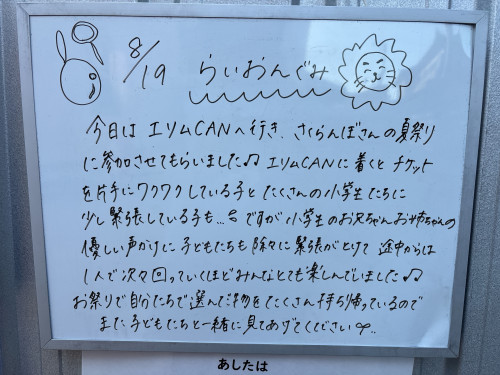 8/19 らいおんぐみ
今日は エリムCANへ行き、さくらんぼさんの夏祭り
に参加させてもらいました♫ エリムCANに着くとチケット
を片手にワクワクしている子とたくさんの小学生たちに
少し緊張している子も... ですが小学生のお兄ちゃんお姉ちゃんの
優しい声かけに子どもたちも除々に緊張がとけて 途中からは
1人で次々回っていくほどみんなとても楽しんでいました♫
お祭りで自分たちで選んだ物をたくさん持ち帰っているので
また子どもたちと一緒に見てあげてください
あしたは